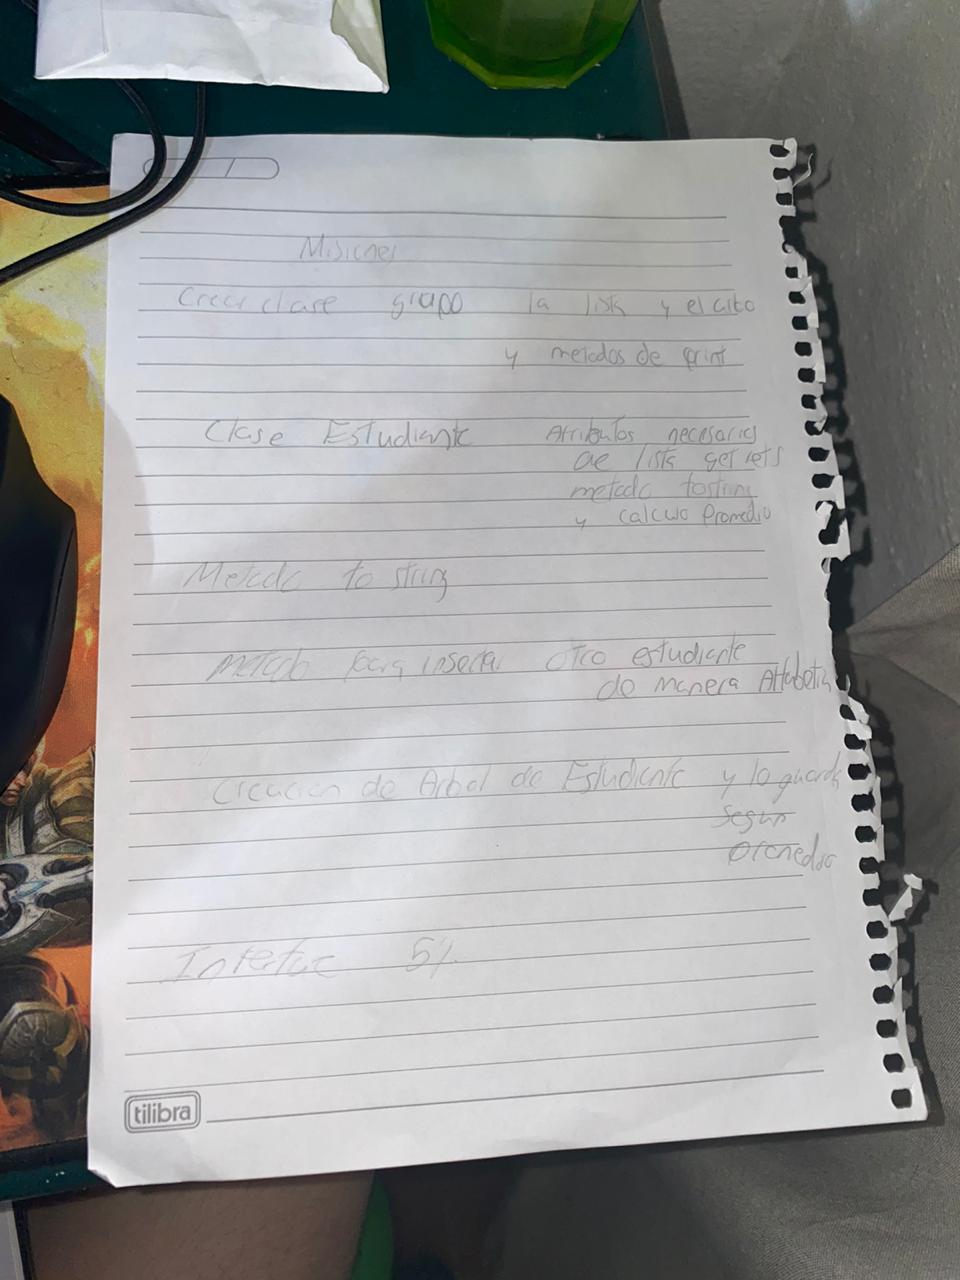 Misiones
Crear clase grupo la lista y el arbo
y metodos de print
Clase Estudiante Atributos necesarios
de lista get sets
metodo tostring
y calculo Promedio
Metodo to string
metodo para insertar otro estudiante
de manera Alfabetic
Creacion de Arbol de Estudiante y lo guarda
segun
promedio
Interfac 5%
tilibra